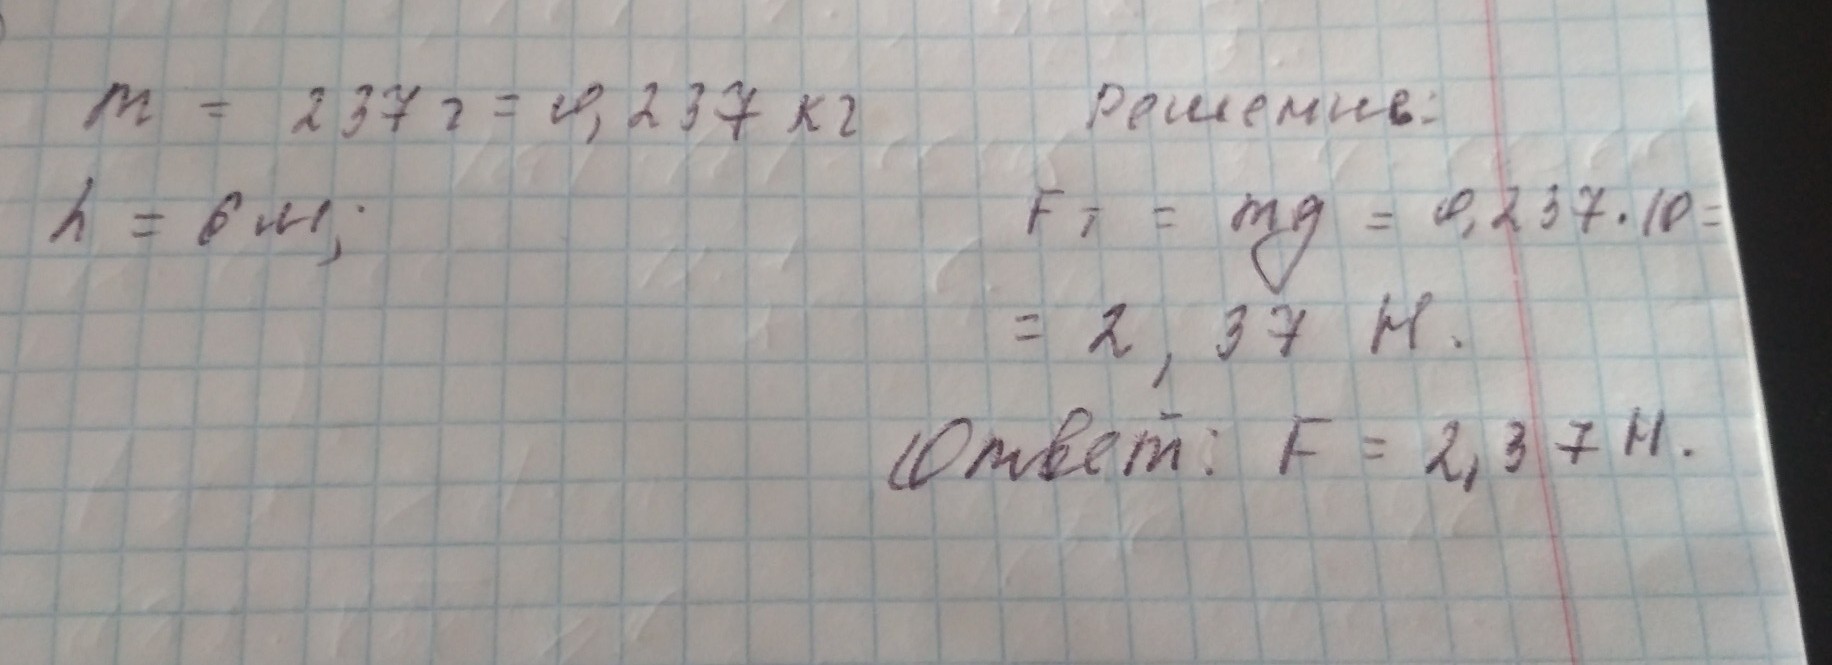 m = 237 г = 0,237 кг
Решение:
h = 6 м;
Fт = mg = 0,237 · 10 =
= 2,37 Н.
Ответ: F = 2,37 Н.